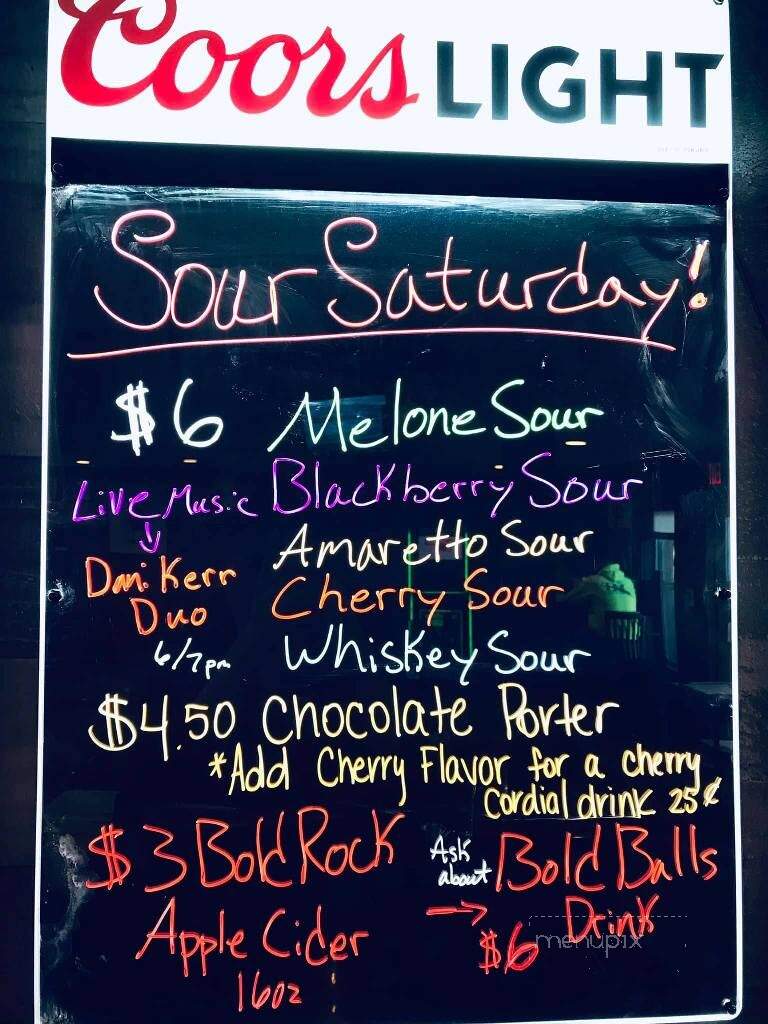 Coors LIGHT
Sour Saturday!
$6 Melone Sour
Live Music Blackberry Sour
Amaretto Sour
Dani Kerr Cherry Sour
Duo
6/7pm Whiskey Sour
$4.50 Chocolate Porter
*Add Cherry Flavor for a cherry
Cordial drink 25¢
$3 Bold Rock
Apple Cider
16oz
Ask about Bold Balls
Drink
$6
menupix